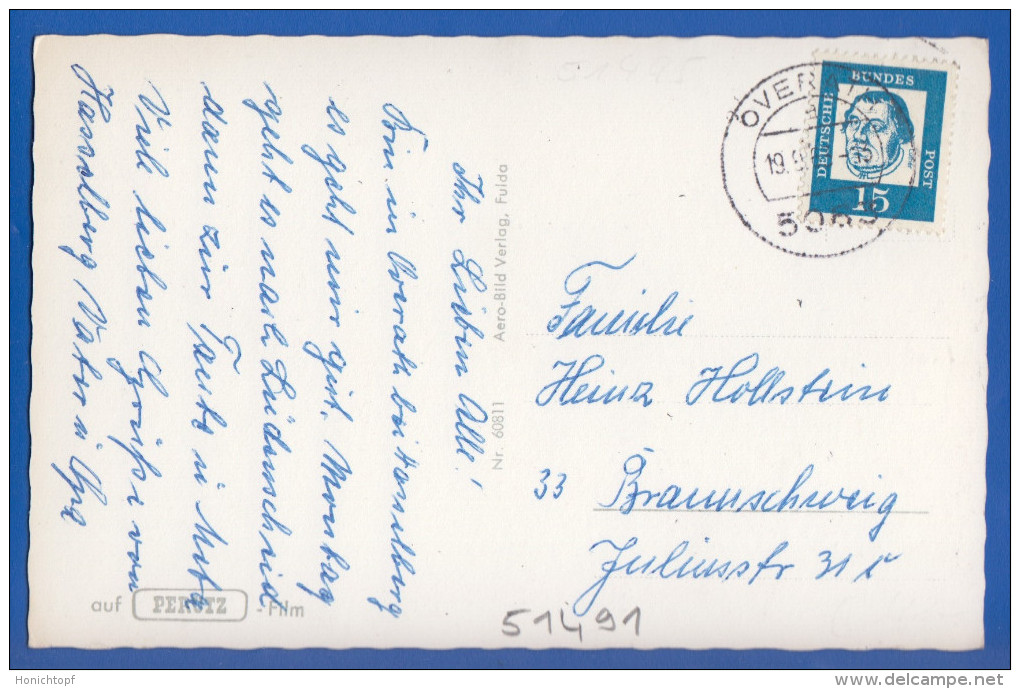 Ihr Lieben Alle!
Bin in Overath bei Hasselberg
es geht mir gut. Montag
geht es nach Lüdenscheid
dann zur Tante u
Viele lieben Grüße von
Hasselberg Vater u Opa
auf PERUTZ -Film
Nr. 60811 Aero-Bild Verlag, Fulda
OVERATH
19.
DEUTSCHE BUNDES POST
15
Familie
Heinz Hollstein
33 Braunschweig
Juliusstr 31
51491
Honichtopf
www.delcampe.net